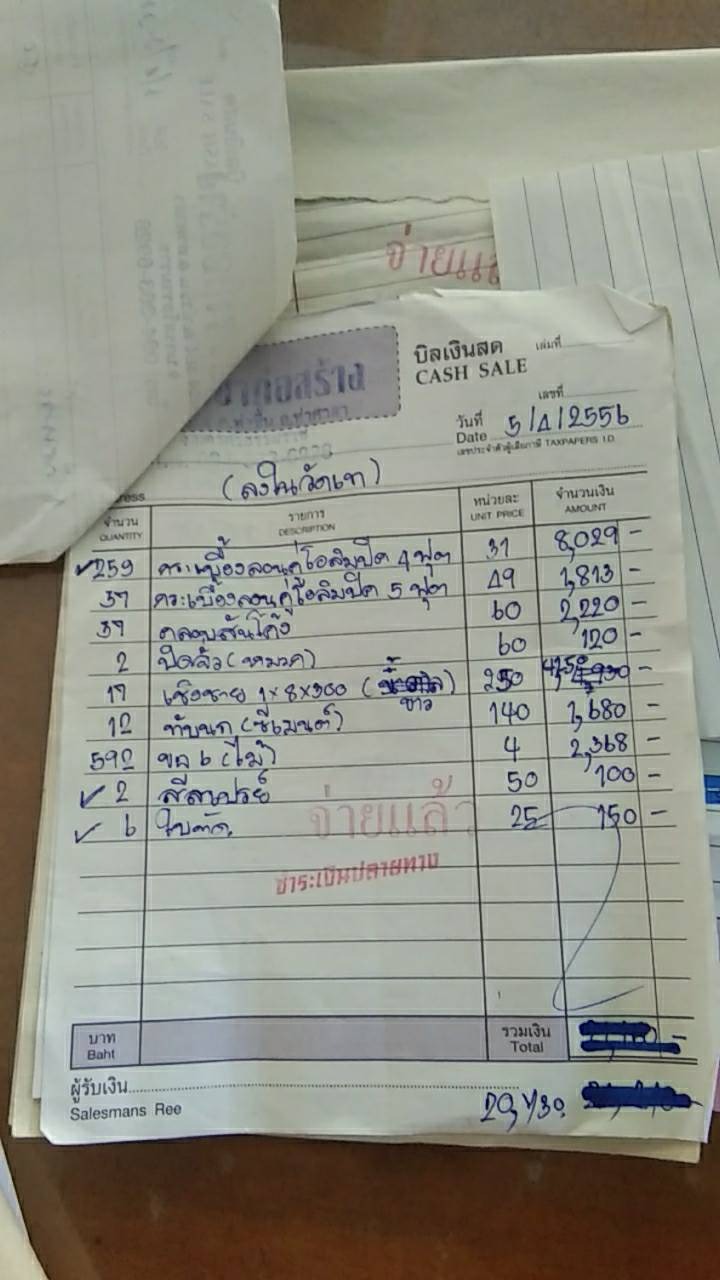 จ่ายแล้
บิลเงินสด เล่มที่
CASH SALE
ก่อสร้าง
เลขที่
วันที่
Date 5/4/2556
เลขประจำตัวผู้เสียภาษี TAXPAPERS I.D.
(ลงในวัดเท)
ress
จำนวน รายการ หน่วยละ จำนวนเงิน
QUANTITY DESCRIPTION UNIT PRICE AMOUNT
✓259 กระเบื้องลอนคู่โอลิมปิค 4 ฟุต 31 8,029 -
37 กระเบื้องลอนคู่โอลิมปิค 5 ฟุต 49 1,813 -
37 ครอบสันโค้ง 60 2,220 -
2 ปิดจั่ว (หมวก) 60 120 -
17 เชิงชาย 1x8x300 ( ขาว ) 250 4250 -
12 ทับนก (ซีเมนต์) 140 1,680 -
592 ขอ 6 (ไม้) 4 2,368 -
✓ 2 สีสเปรย์ 50 100 -
✓ 6 ใบตัด 25 150 -
จ่ายแล้ว
ชำระเงินปลายทาง
บาท รวมเงิน
Baht Total
ผู้รับเงิน
Salesmans Ree
20,730